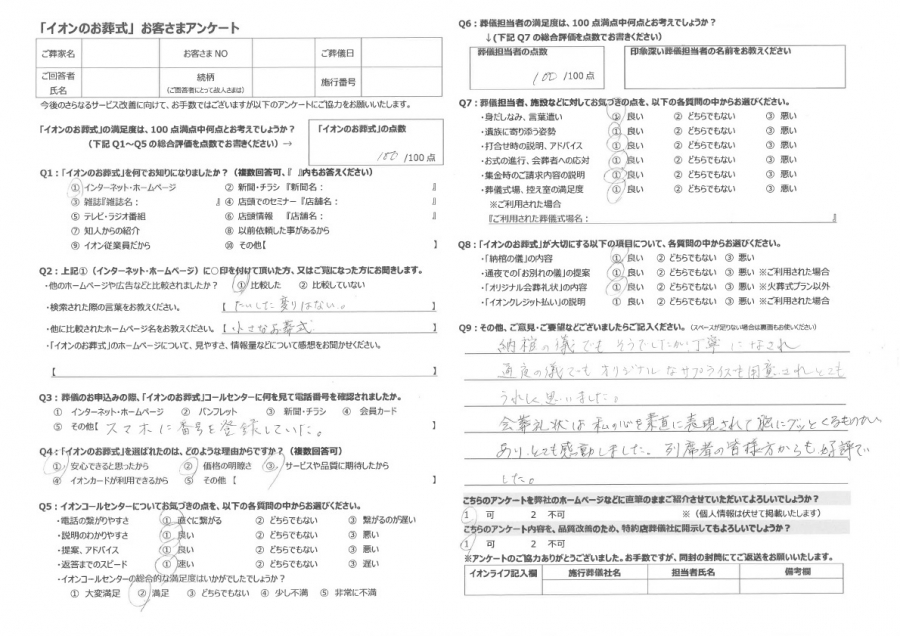 「イオンのお葬式」お客さまアンケート
ご葬家名 お客さまNO ご葬儀日
ご回答者氏名 続柄（ご回答者にとって故人さまは） 施行番号
今後のさらなるサービス改善に向けて、お手数ではございますが以下のアンケートにご協力をお願いいたします。
「イオンのお葬式」の満足度は、100点満点中何点とお考えでしょうか？
（下記Q1～Q5の総合評価を点数でお書きください）→
「イオンのお葬式」の点数
100 /100点
Q1：「イオンのお葬式」を何でお知りになりましたか？（複数回答可、『 』内もお答えください）
① インターネット・ホームページ ② 新聞・チラシ『新聞名： 』
③ 雑誌『雑誌名： 』 ④ 店頭でのセミナー『店舗名： 』
⑤ テレビ・ラジオ番組 ⑥ 店頭情報 『店舗名： 』
⑦ 知人からの紹介 ⑧ 以前依頼した事があるから
⑨ イオン従業員だから ⑩ その他【 】
Q2：上記①（インターネット・ホームページ）に○印を付けて頂いた方、又はご覧になった方にお聞きします。
・他のホームページや広告などと比較されましたか？ ① 比較した ② 比較していない
・検索された際の言葉をお教えください。 【 たいした変りはない。 】
・他に比較されたホームページ名をお教えください。【 小さなお葬式 】
・「イオンのお葬式」のホームページについて、見やすさ、情報量などについて感想をお聞かせください。
【 】
Q3：葬儀のお申込みの際、「イオンのお葬式」コールセンターに何を見て電話番号を確認されましたか。
① インターネット・ホームページ ② パンフレット ③ 新聞・チラシ ④ 会員カード
⑤ その他【 スマホに番号を登録していた。 】
Q4：「イオンのお葬式」を選ばれたのは、どのような理由からですか？（複数回答可）
① 安心できると思ったから ② 価格の明瞭さ ③ サービスや品質に期待したから
④ イオンカードが利用できるから ⑤ その他【 】
Q5：イオンコールセンターについてお気づきの点を、以下の各質問の中からお選びください。
・電話の繋がりやすさ ① 直ぐに繋がる ② どちらでもない ③ 繋がるのが遅い
・説明のわかりやすさ ① 良い ② どちらでもない ③ 悪い
・提案、アドバイス ① 良い ② どちらでもない ③ 悪い
・返答までのスピード ① 速い ② どちらでもない ③ 遅い
・イオンコールセンターの総合的な満足度はいかがでしたでしょうか？
① 大変満足 ② 満足 ③ どちらでもない ④ 少し不満 ⑤ 非常に不満
Q6：葬儀担当者の満足度は、100点満点中何点とお考えでしょうか？
↓（下記Q7の総合評価を点数でお書きください）
葬儀担当者の点数 印象深い葬儀担当者の名前をお教えください
100 /100点
Q7：葬儀担当者、施設などに対してお気づきの点を、以下の各質問の中からお選びください。
・身だしなみ、言葉遣い ① 良い ② どちらでもない ③ 悪い
・遺族に寄り添う姿勢 ① 良い ② どちらでもない ③ 悪い
・打合せ時の説明、アドバイス ① 良い ② どちらでもない ③ 悪い
・お式の進行、会葬者への応対 ① 良い ② どちらでもない ③ 悪い
・集金時のご請求内容の説明 ① 良い ② どちらでもない ③ 悪い
・葬儀式場、控え室の満足度 ① 良い ② どちらでもない ③ 悪い
※ご利用された場合
『ご利用された葬儀式場名： 』
Q8：「イオンのお葬式」が大切にする以下の項目について、各質問の中からお選びください。
・「納棺の儀」の内容 ① 良い ② どちらでもない ③ 悪い
・通夜での「お別れの儀」の提案 ① 良い ② どちらでもない ③ 悪い ※ご利用された場合
・「オリジナル会葬礼状」の内容 ① 良い ② どちらでもない ③ 悪い ※火葬式プラン以外
・「イオンクレジット払い」の説明 ① 良い ② どちらでもない ③ 悪い ※ご利用された場合
Q9：その他、ご意見・ご要望などございましたらご記入ください。（スペースが足りない場合は裏面もお使いください）
納棺の儀でもそうでしたが丁寧になされ
通夜の儀でもオリジナルなサプライズも用意されとても
うれしく思いました。
会葬礼状は私の心を素直に表現されて胸にグッとくるものが
あり、とても感動しました。列席者の皆様方からも好評で
した。
こちらのアンケートを弊社のホームページなどに直筆のままご紹介させていただいてよろしいでしょうか？
1 可 2 不可 ※（個人情報は伏せて掲載いたします）
こちらのアンケート内容を、品質改善のため、特約店葬儀社に開示してもよろしいでしょうか？
1 可 2 不可
※アンケートのご協力ありがとうございました。お手数ですが、同封の封筒にてご返送をお願いいたします。
イオンライフ記入欄 施行葬儀社名 担当者氏名 備考欄